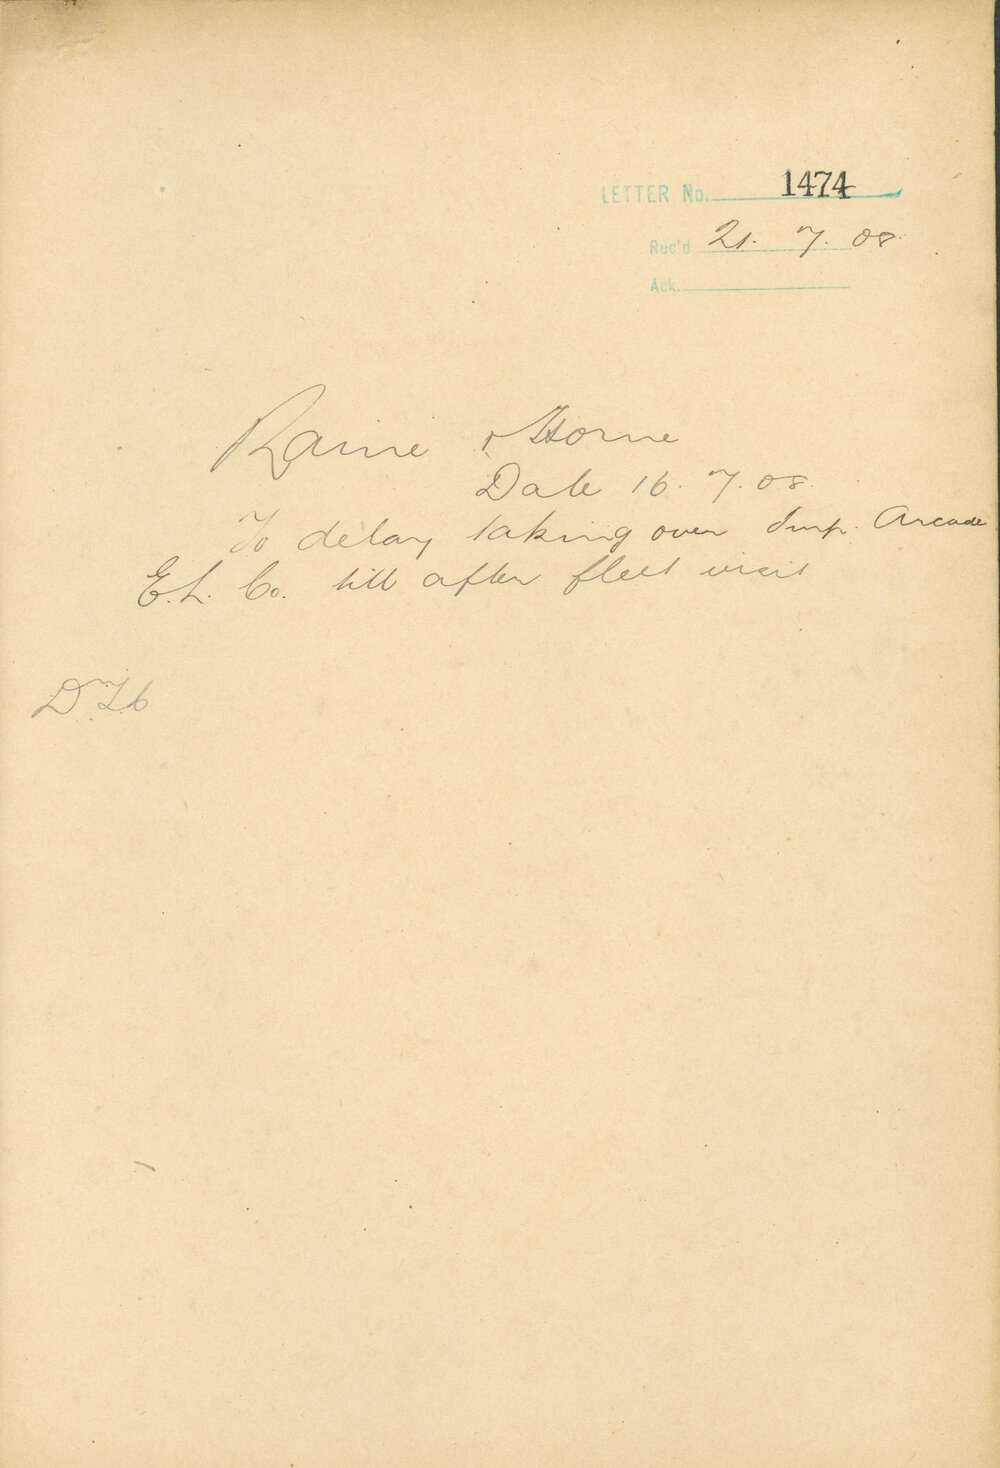 LETTER No. 1474
Rec'd 21. 7. 08.
Ack.
Raine & Horne
Date 16. 7. 08.
To delay taking over Imp. Arcade
E. L. Co. till after fleet visit